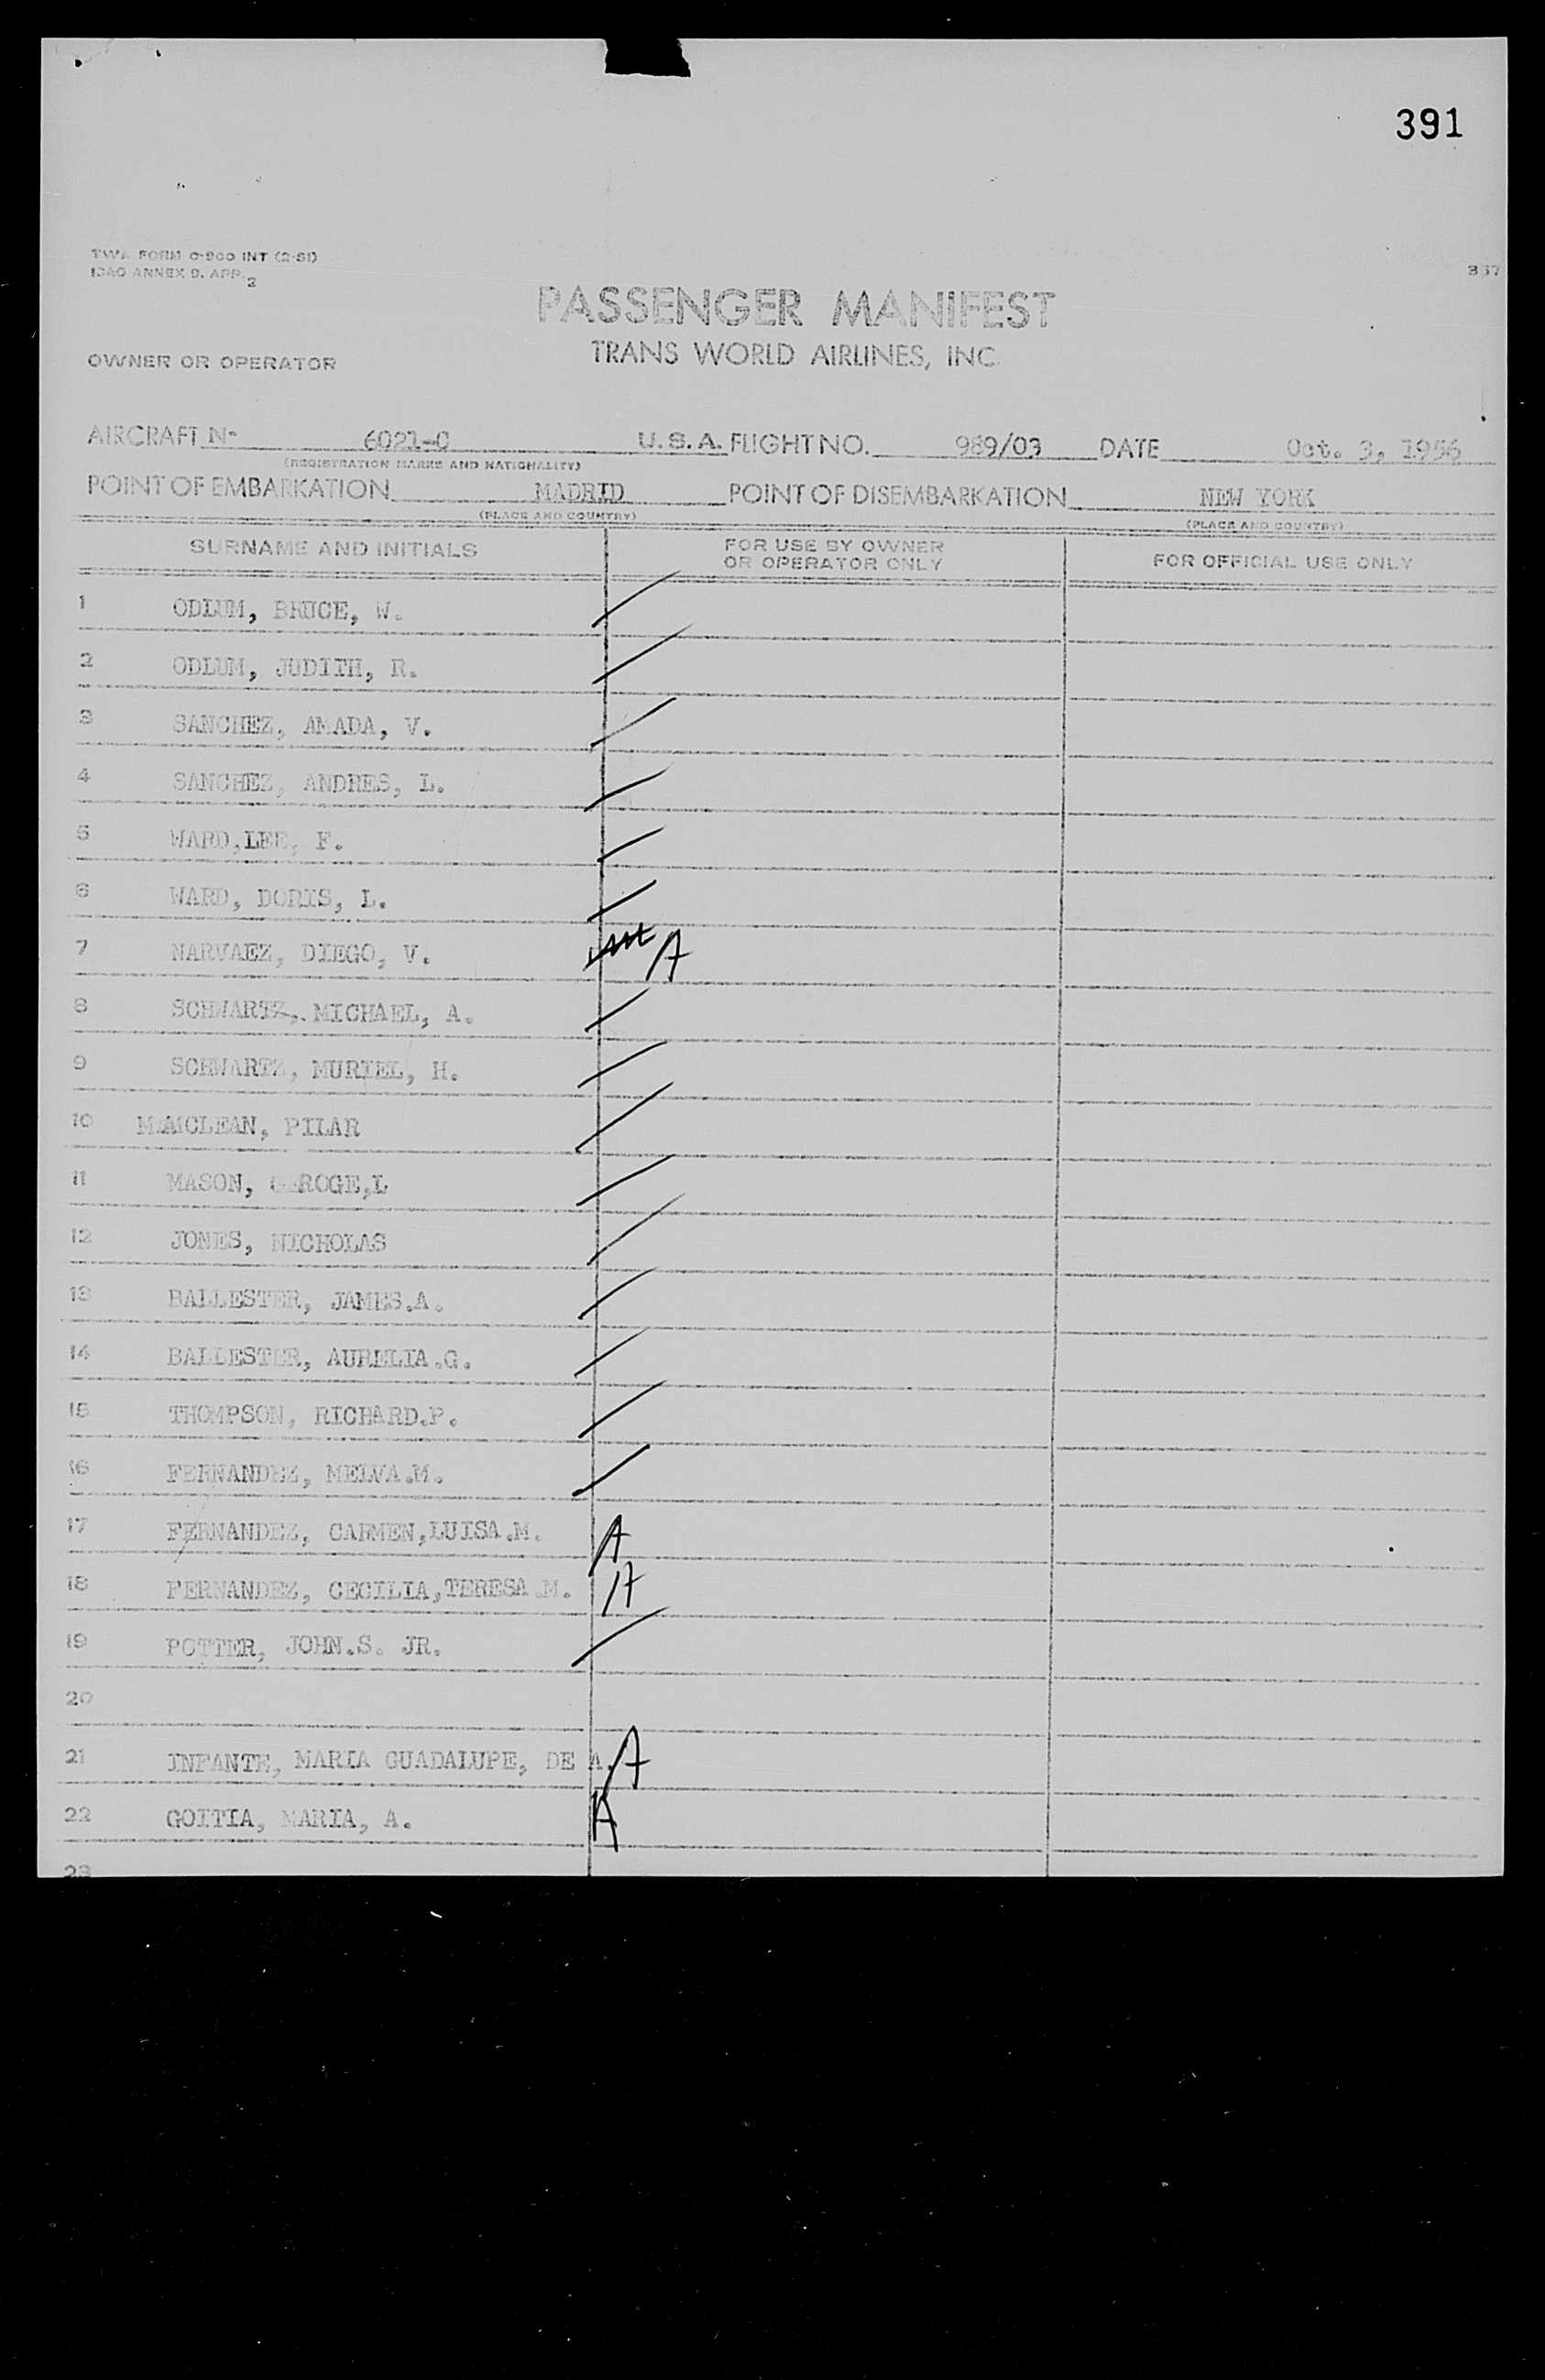 391
TWA FORM O-900 INT (2-51)
ICAO ANNEX 9. APP. 2
337
PASSENGER MANIFEST
OWNER OR OPERATOR TRANS WORLD AIRLINES, INC.
AIRCRAFT N- 6021-C U.S.A. FLIGHT NO. 989/03 DATE Oct. 3, 1956
(REGISTRATION MARKS AND NATIONALITY)
POINT OF EMBARKATION MADRID POINT OF DISEMBARKATION NEW YORK
(PLACE AND COUNTRY) (PLACE AND COUNTRY)
SURNAME AND INITIALS FOR USE BY OWNER OR OPERATOR ONLY FOR OFFICIAL USE ONLY
1 ODLUM, BRUCE, W.
2 ODLUM, JUDITH, R.
3 SANCHEZ, AMADA, V.
4 SANCHEZ, ANDRES, L.
5 WARD,LEE, F.
6 WARD, DORIS, L.
7 NARVAEZ, DIEGO, V. A
8 SCHWARTZ, MICHAEL, A.
9 SCHWARTZ, MURIEL, H.
10 MCLEAN, PILAR
11 MASON, GEROGE,L
12 JONES, NICHOLAS
13 BALLESTER, JAMES.A.
14 BALLESTER, AURELIA.G.
15 THOMPSON, RICHARD.P.
16 FERNANDEZ, MELVA.M.
17 FERNANDEZ, CARMEN,LUISA.M. A
18 FERNANDEZ, CECILIA,TERESA.M. A
19 POTTER, JOHN.S. JR.
20
21 INFANTE, MARIA GUADALUPE, DE A. A
22 GOITIA, MARIA, A. A
23